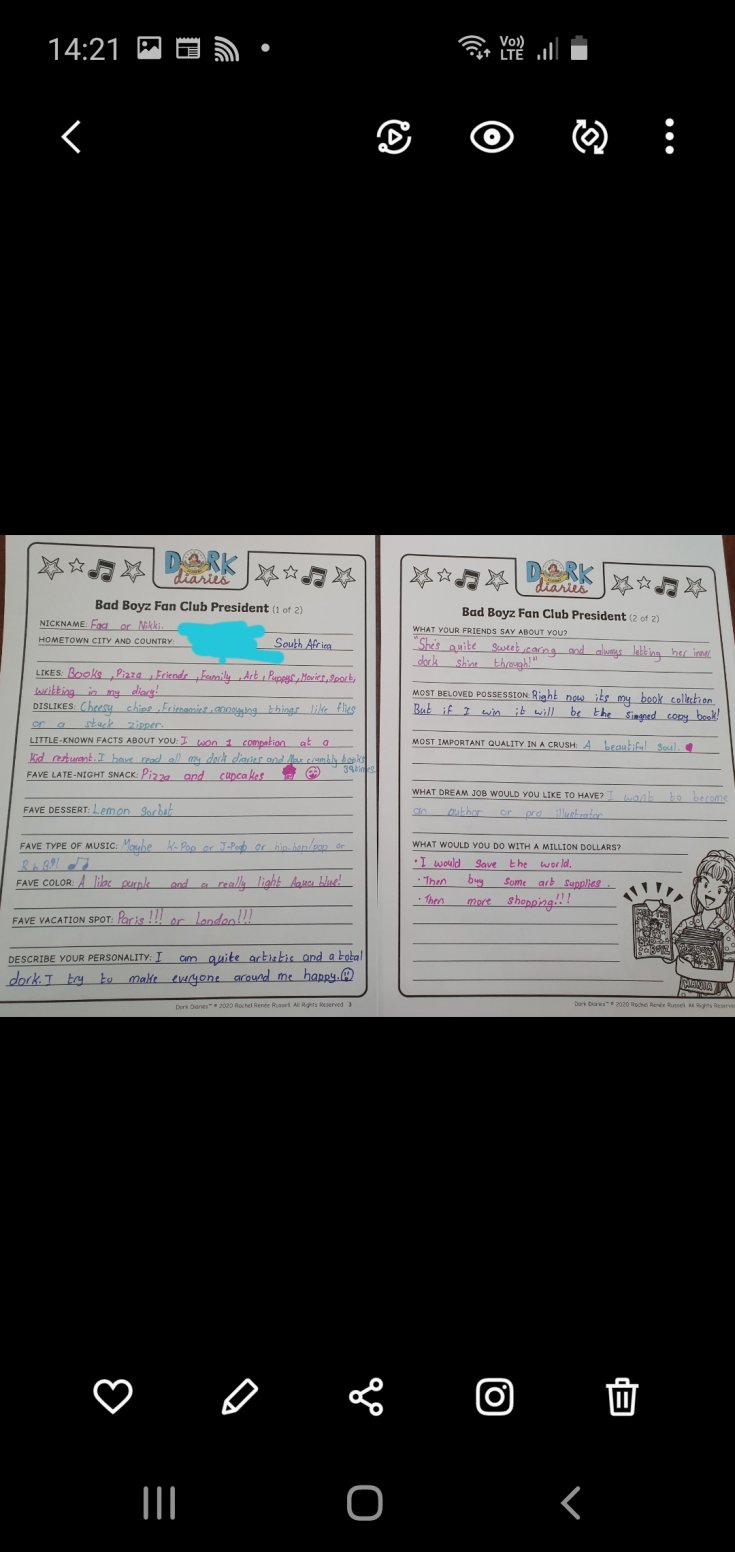 14:21
Vo))
LTE
DORK
diaries
Bad Boyz Fan Club President (1 of 2)
NICKNAME: or Nikki.
HOMETOWN CITY AND COUNTRY: South Africa
LIKES: Books, Pizza, Friends, Family, Art, Puppys, Movies, Sport,
writting in my diary!
DISLIKES: Cheesy chips, Frienamies, annoyying things like flies
or a stuck zipper.
LITTLE-KNOWN FACTS ABOUT YOU: I won 1 compation at a
Kid resturant. I have read all my dork diaries and Max crumbly books
FAVE LATE-NIGHT SNACK: Pizza and cupcakes
FAVE DESSERT: Lemon sorbet
FAVE TYPE OF MUSIC: Maybe K-Pop or J-Pop or hip-hop/pop or
FAVE COLOR: A lilac purple and a really light Aqua blue!
FAVE VACATION SPOT: Paris!!! or London!!!
DESCRIBE YOUR PERSONALITY: I am quite artistic and a total
dork. I try to make everyone around me happy.
Dork Diaries™ © 2020 Rachel Renée Russell. All Rights Reserved 3
DORK
diaries
Bad Boyz Fan Club President (2 of 2)
WHAT YOUR FRIENDS SAY ABOUT YOU?
"She's quite sweet, caring and always letting her inner
dork shine through!"
MOST BELOVED POSSESSION: Right now its my book collection
But if I win it will be the simgned copy book!
MOST IMPORTANT QUALITY IN A CRUSH: A beautiful soul.
WHAT DREAM JOB WOULD YOU LIKE TO HAVE? I want to become
an author or pro illustrator
WHAT WOULD YOU DO WITH A MILLION DOLLARS?
• I would save the world.
• Then buy some art supplies.
• Then more shopping!!!
MANIA
Dork Diaries™ © 2020 Rachel Renée Russell. All Rights Reserve